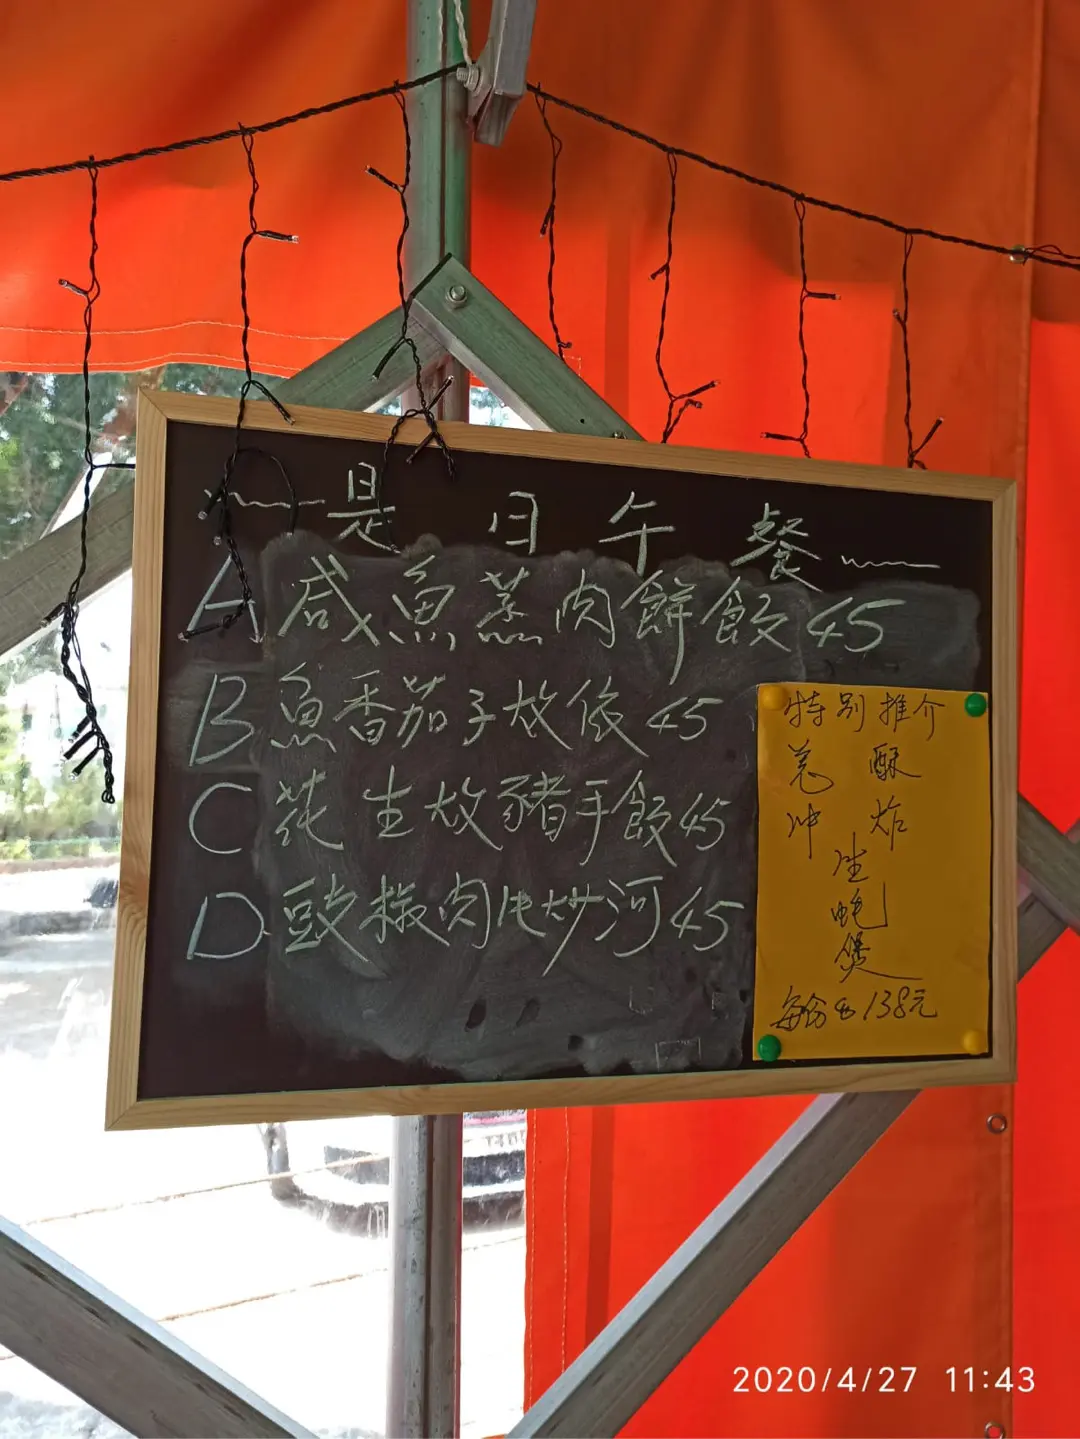 是日午餐
A 咸魚蒸肉餅飯 45
B 魚香茄子 45
C 花生 豬手飯 45
D. 豉椒肉 炒河 45
特别推介
酥
炸
生
蚝
煲
每份 138元
2020/4/27 11:43